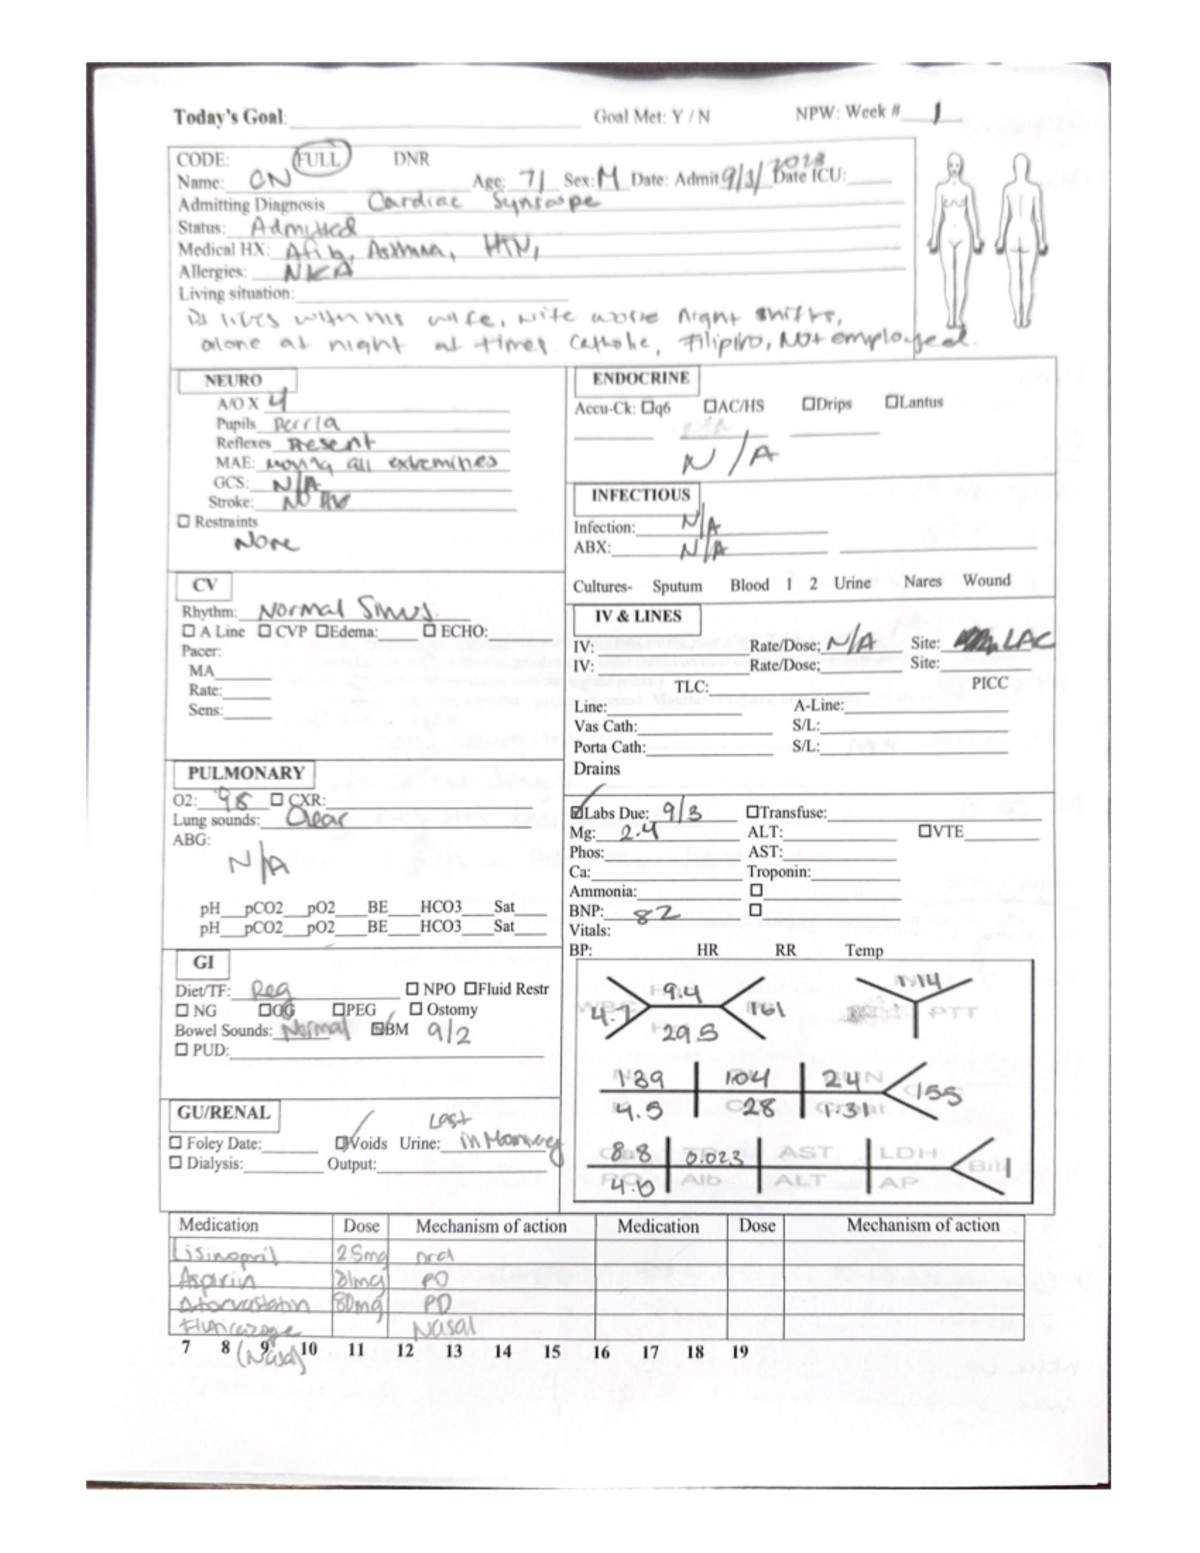 Today's Goal: Goal Met: Y / N NPW: Week # 1
CODE: FULL DNR
Name: CN Age: 71 Sex: M Date: Admit 9/3/2023 Date ICU:
Admitting Diagnosis Cardiac Synscope
Status: Admitted
Medical HX: Afib, Asthma, HTN,
Allergies: NKA
Living situation:
lives with his wife, wife works night shifts,
alone at night at times. Catholic, Filipino, Not employed.
NEURO
A/O X 4
Pupils Perrla
Reflexes Present
MAE: moving all extremities
GCS: N/A
Stroke: No HX
☐ Restraints
None
ENDOCRINE
Accu-Ck: ☐q6 ☐AC/HS ☐Drips ☐Lantus
N/A
INFECTIOUS
Infection: N/A
ABX: N/A
Cultures- Sputum Blood 1 2 Urine Nares Wound
CV
Rhythm: Normal Sinus.
☐ A Line ☐ CVP ☐Edema: ☐ ECHO:
Pacer:
MA
Rate:
Sens:
IV & LINES
IV: Rate/Dose: N/A Site: LAC
IV: Rate/Dose; Site:
TLC: PICC
Line: A-Line:
Vas Cath: S/L:
Porta Cath: S/L:
Drains
PULMONARY
O2: 98 ☐ CXR:
Lung sounds: Clear
ABG:
N/A
pH pCO2 pO2 BE HCO3 Sat
pH pCO2 pO2 BE HCO3 Sat
☑Labs Due: 9/3 ☐Transfuse:
Mg: 2.4 ALT: ☐VTE
Phos: AST:
Ca: Troponin:
Ammonia: ☐
BNP: 82 ☐
Vitals:
BP: HR RR Temp
GI
Diet/TF: Reg ☐ NPO ☐Fluid Restr
☐ NG ☐OG ☐PEG ☐ Ostomy
Bowel Sounds: Normal ☑BM 9/2
☐ PUD:
9.4
4.7 161
29.5
1.14
PTT
139 104 24 BUN
155
4.5 28 1.31
8.8 0.023 AST LDH
Bili
4.0 Alb ALT AP
GU/RENAL
☐ Foley Date: ☑Voids Urine: Last in Morning
☐ Dialysis: Output:
Medication Dose Mechanism of action Medication Dose Mechanism of action
Lisinopril 25mg oral
Aspirin 81mg PO
Atorvastatin 80mg PO
Nasal
7 8 9 10 11 12 13 14 15 16 17 18 19
(Nasal)